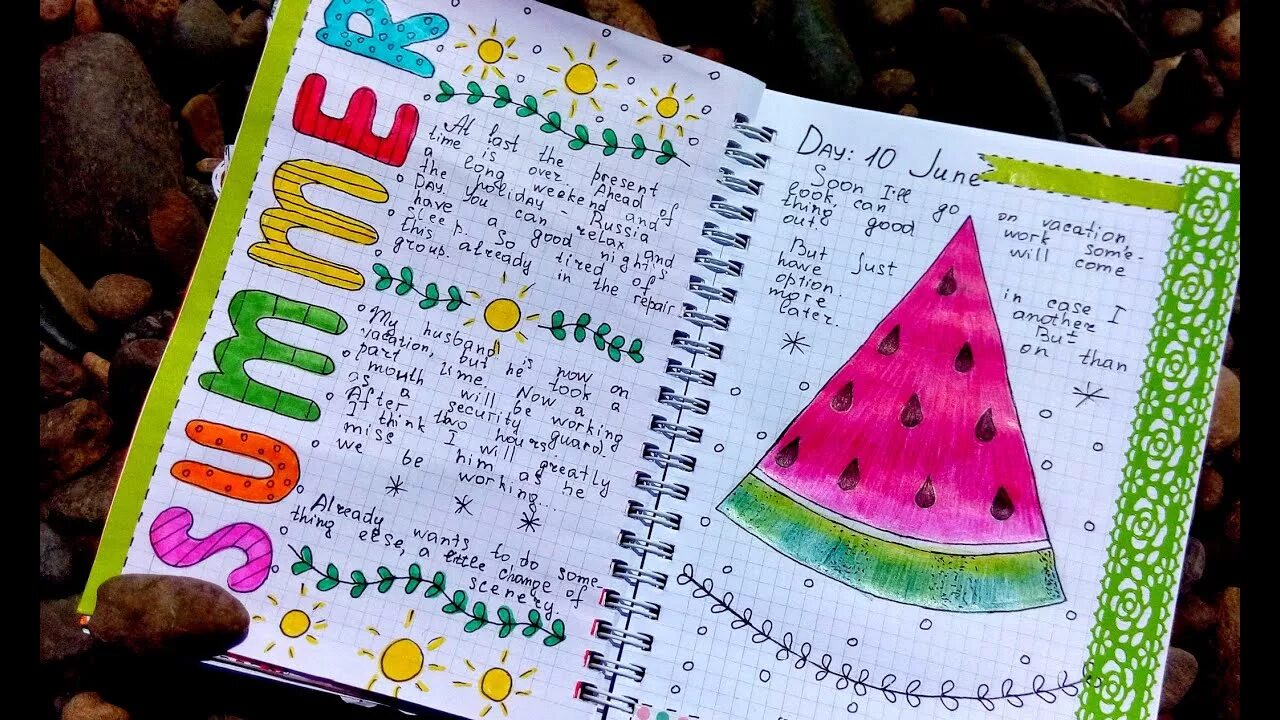 SUMMER
At last the present
time is over. Ahead of
a long weekend and
the holiday - Russia
Day. You can relax and
have a good night's
sleep. So tired of
this already in the repair
group.
My husband is now on
vacation, but he took a
part time. Now a
mouth will be working
as a security guard.
After two hours)
I think I will greatly
miss him as he
we be working.
Already wants to do some
thing else, a little change of
scenery.
Day: 10 June
Soon I'll go on vacation,
look can work some-
thing good will come
out.
But just in case I
have another
option. But
more on than
later.